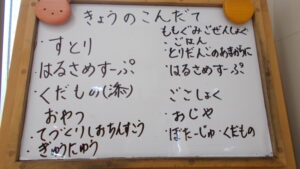 きょうのこんだて
・すとり
・はるさめすーぷ
・くだもの
・おやつ
・てづくりしおちんすこう
・ぎゅうにゅう
ももぐみごぜんしょく
・ごはん
・はるさめすーぷ
・ごごしょく
・おじや
・ぽたーじゅ・くだもの